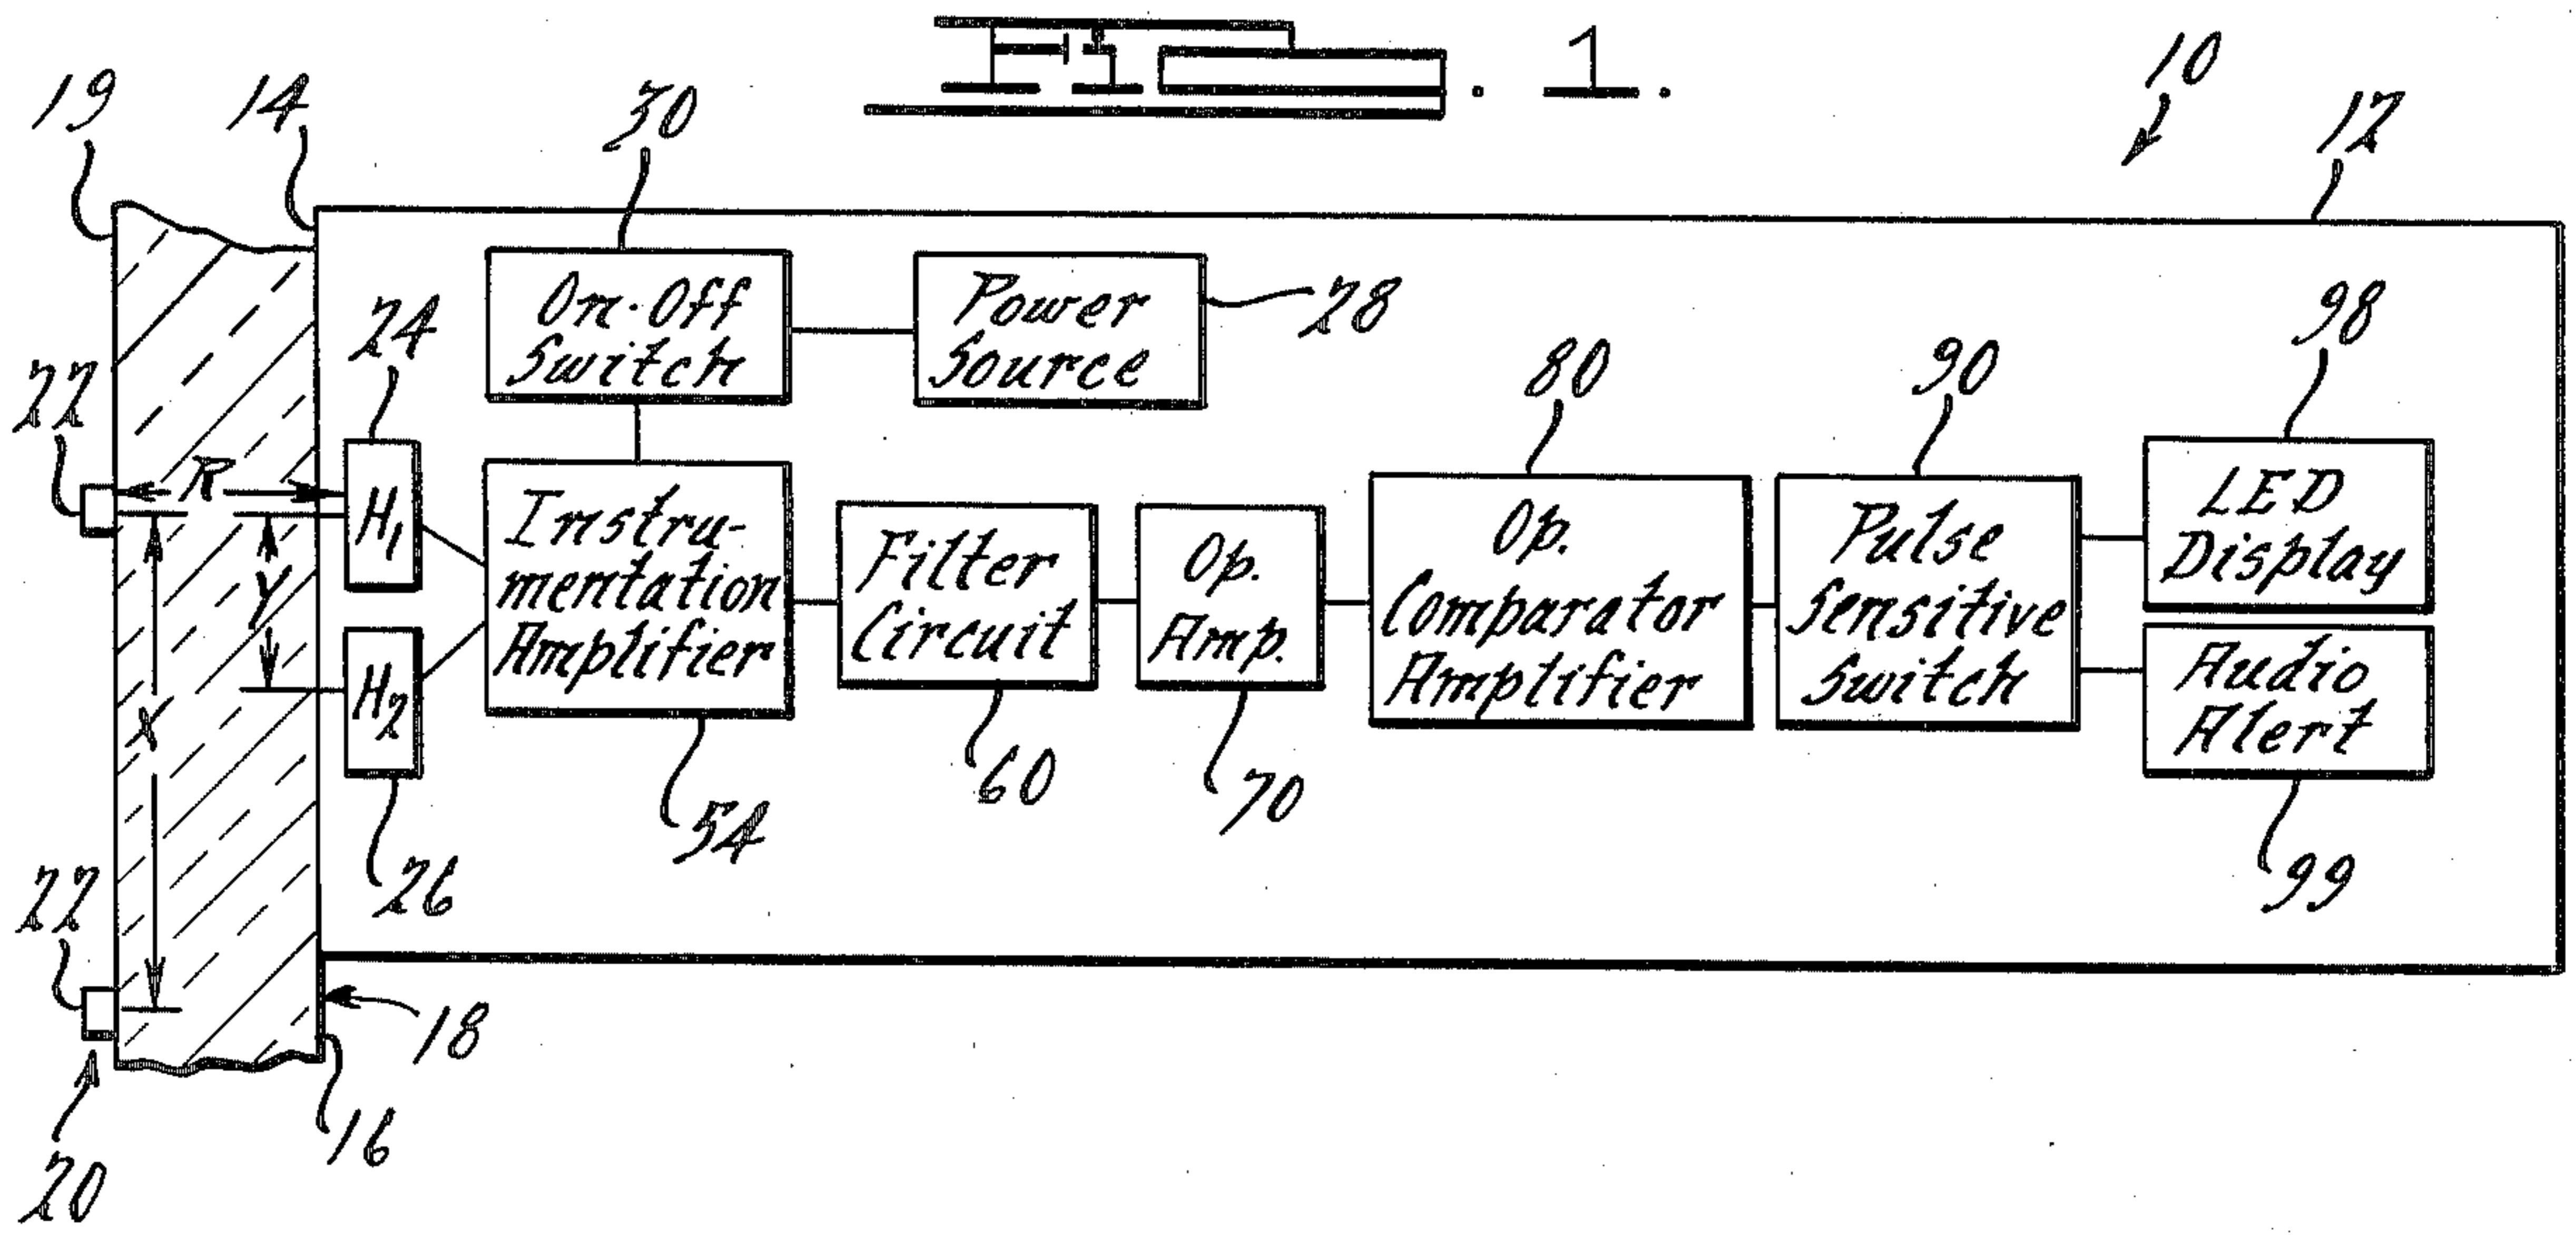 FIG. 1.
10
12
19
14
30
On-Off
Switch
Power
Source
28
24
22
R
H1
Y
X
H2
26
Instru-
mentation
Amplifier
54
Filter
Circuit
60
Op.
Amp.
70
80
Op.
Comparator
Amplifier
90
Pulse
Sensitive
Switch
98
LED
Display
Audio
Alert
99
22
20
18
16